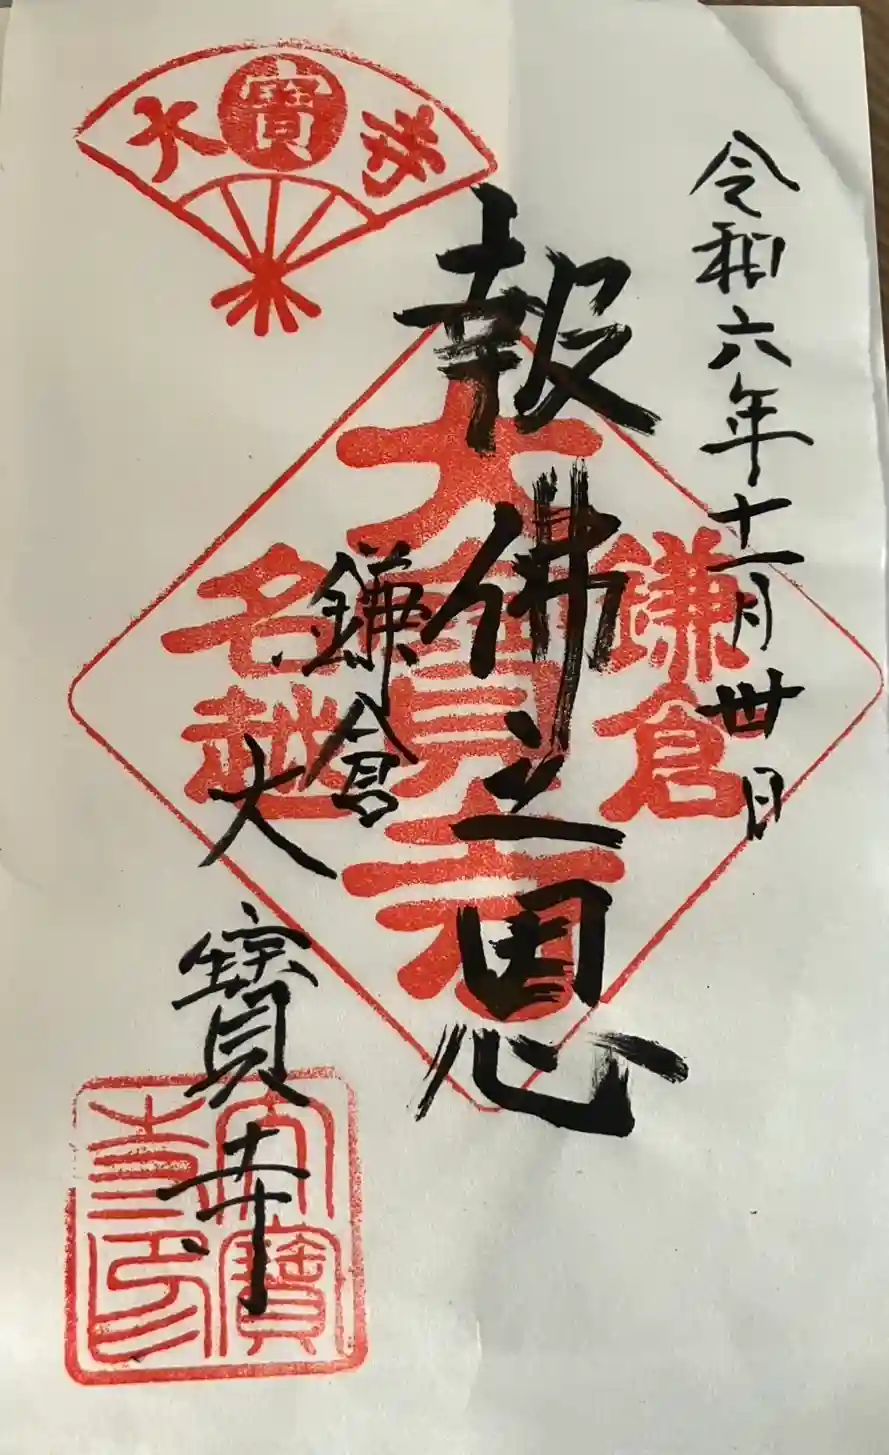 令和六年十一月丗日
報佛之恩
鎌倉
大寶寺
大寶寺
鎌倉
大寶寺
名越
大寶寺印